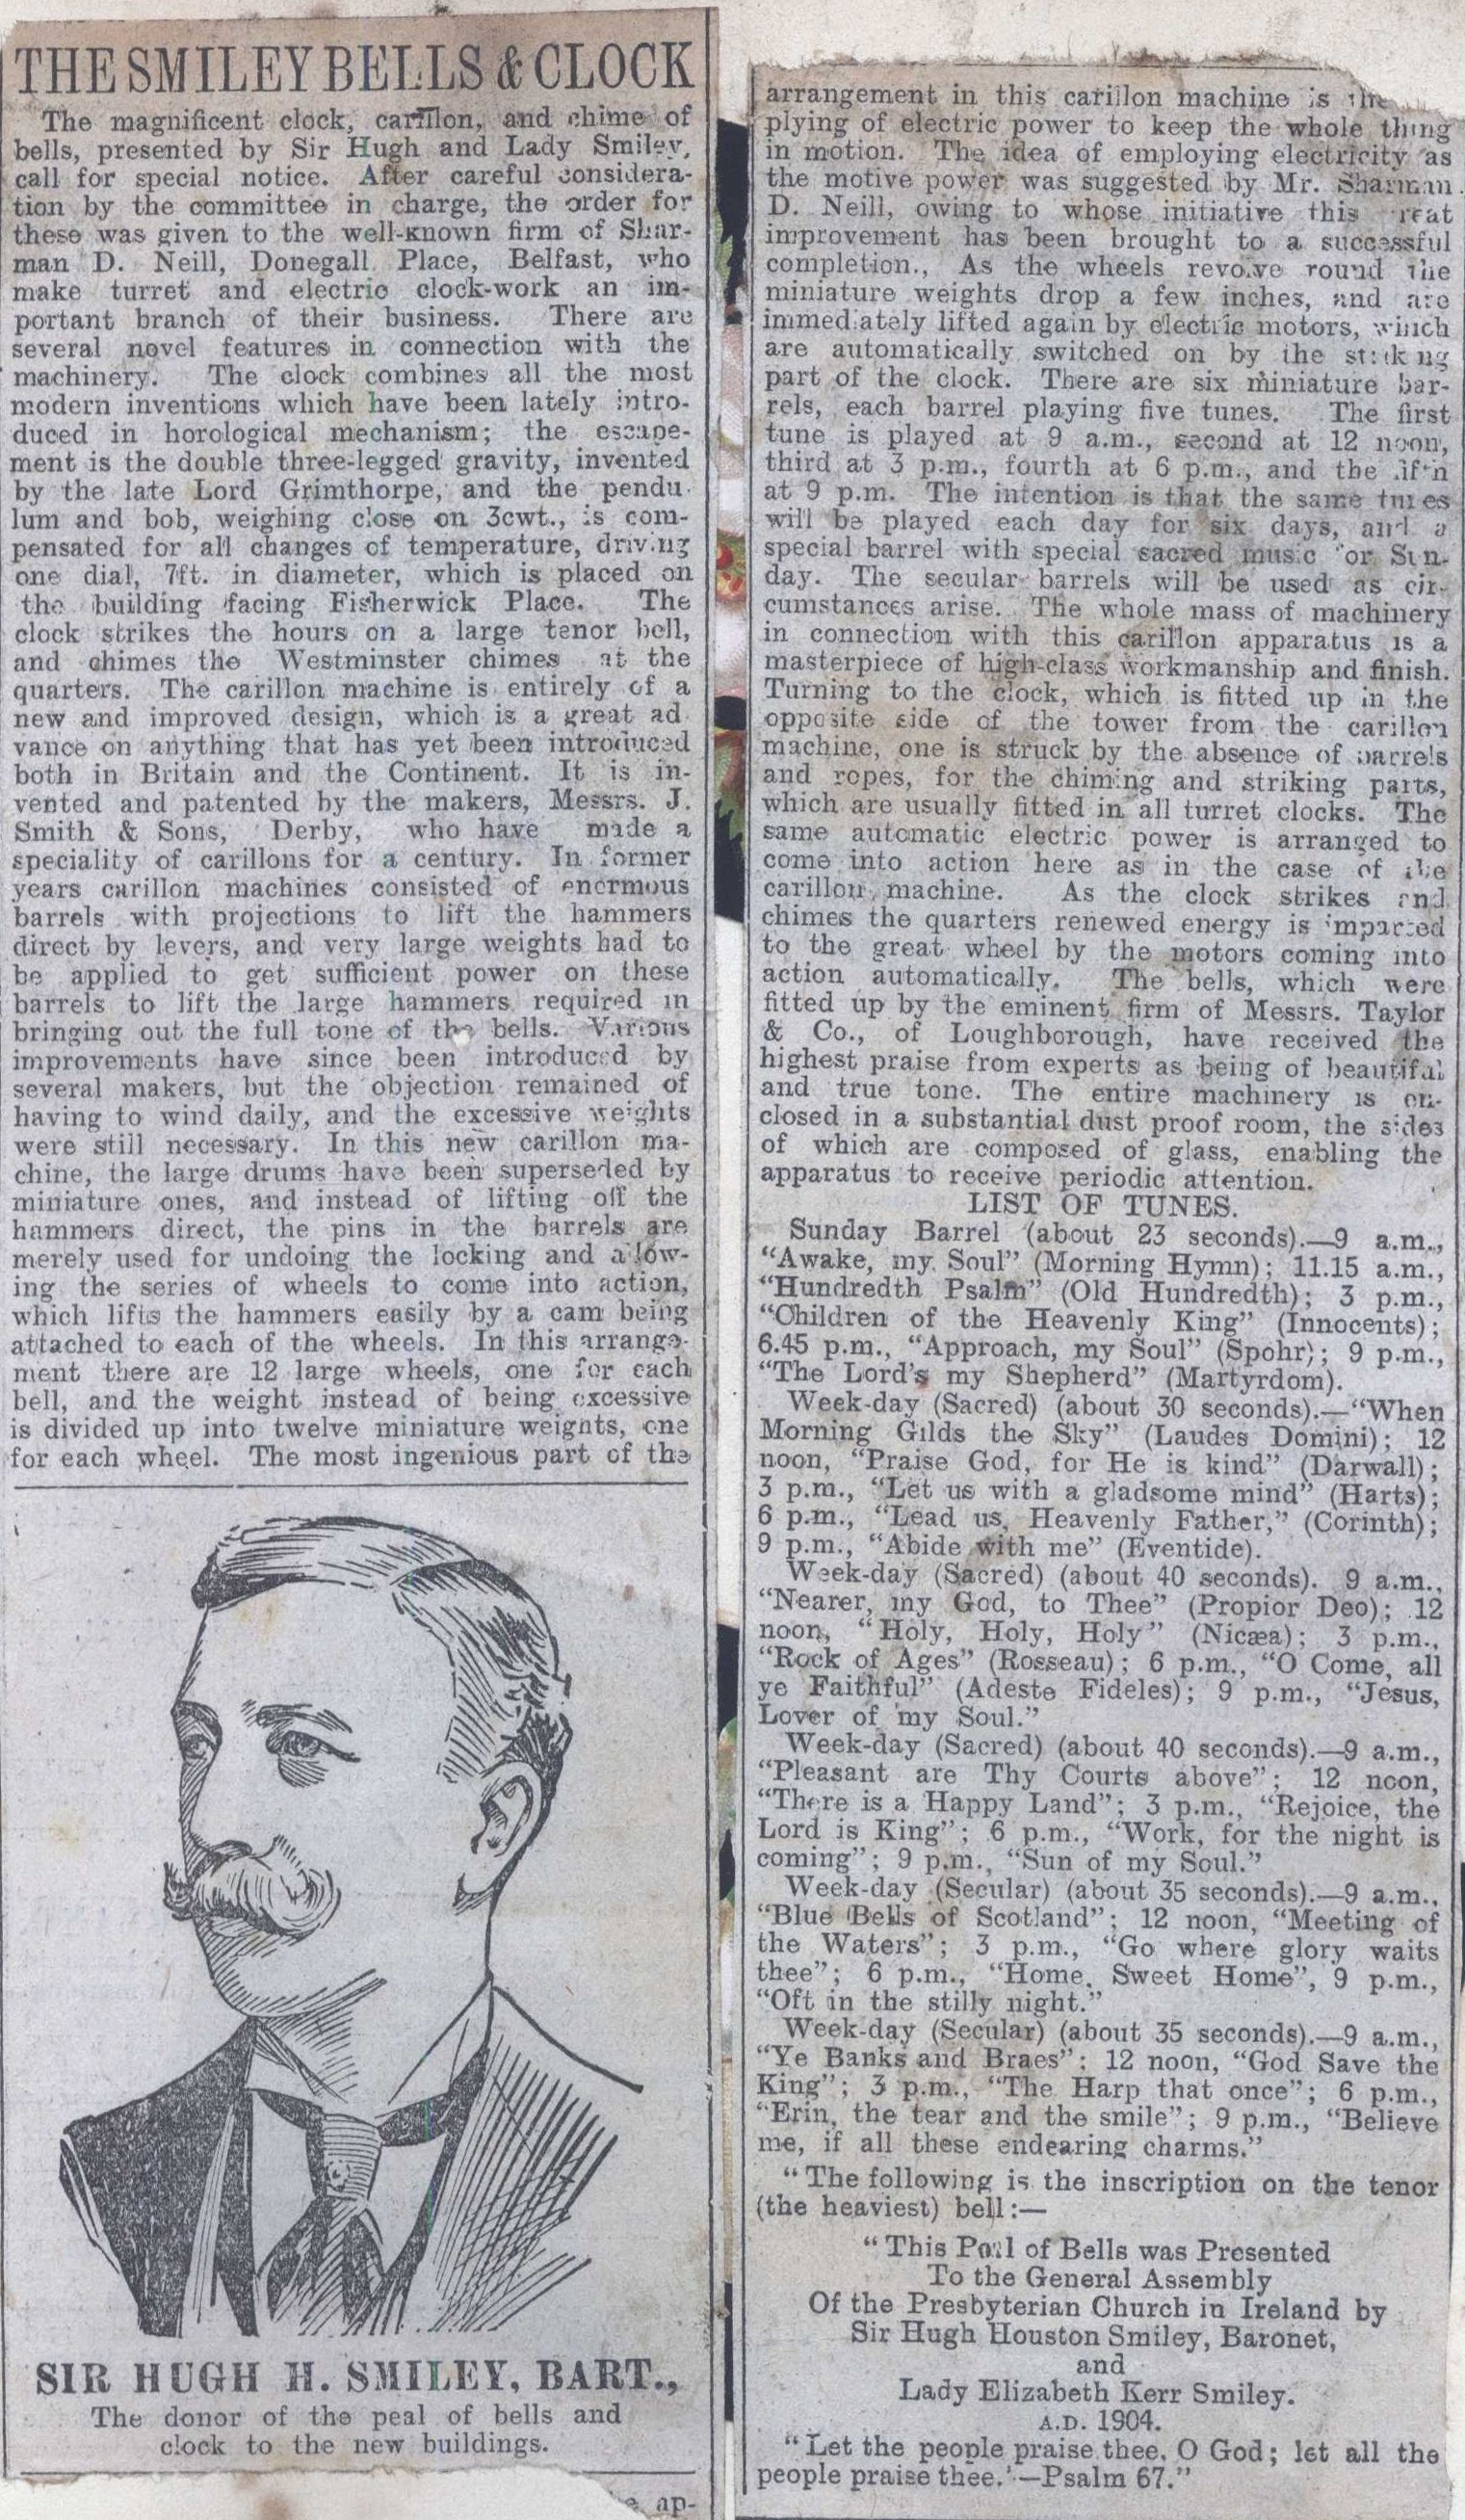 THE SMILEY BELLS & CLOCK
The magnificent clock, carillon, and chime of
bells, presented by Sir Hugh and Lady Smiley,
call for special notice. After careful considera-
tion by the committee in charge, the order for
these was given to the well-known firm of Shar-
man D. Neill, Donegall Place, Belfast, who
make turret and electric clock-work an im-
portant branch of their business. There are
several novel features in connection with the
machinery. The clock combines all the most
modern inventions which have been lately intro-
duced in horological mechanism; the escape-
ment is the double three-legged gravity, invented
by the late Lord Grimthorpe, and the pendu-
lum and bob, weighing close on 3cwt., is com-
pensated for all changes of temperature, driving
one dial, 7ft. in diameter, which is placed on
the building facing Fisherwick Place. The
clock strikes the hours on a large tenor bell,
and chimes the Westminster chimes at the
quarters. The carillon machine is entirely of a
new and improved design, which is a great ad-
vance on anything that has yet been introduced
both in Britain and the Continent. It is in-
vented and patented by the makers, Messrs. J.
Smith & Sons, Derby, who have made a
speciality of carillons for a century. In former
years carillon machines consisted of enormous
barrels with projections to lift the hammers
direct by levers, and very large weights had to
be applied to get sufficient power on these
barrels to lift the large hammers required in
bringing out the full tone of the bells. Various
improvements have since been introduced by
several makers, but the objection remained of
having to wind daily, and the excessive weights
were still necessary. In this new carillon ma-
chine, the large drums have been superseded by
miniature ones, and instead of lifting off the
hammers direct, the pins in the barrels are
merely used for undoing the locking and allow-
ing the series of wheels to come into action,
which lifts the hammers easily by a cam being
attached to each of the wheels. In this arrange-
ment there are 12 large wheels, one for each
bell, and the weight instead of being excessive
is divided up into twelve miniature weights, one
for each wheel. The most ingenious part of the
SIR HUGH H. SMILEY, BART.,
The donor of the peal of bells and
clock to the new buildings.
ap-
arrangement in this carillon machine is the
plying of electric power to keep the whole thing
in motion. The idea of employing electricity as
the motive power was suggested by Mr. Sharman
D. Neill, owing to whose initiative this reat
improvement has been brought to a successful
completion., As the wheels revolve round the
miniature weights drop a few inches, and are
immediately lifted again by electric motors, which
are automatically switched on by the striking
part of the clock. There are six miniature bar-
rels, each barrel playing five tunes. The first
tune is played at 9 a.m., second at 12 noon,
third at 3 p.m., fourth at 6 p.m., and the fifth
at 9 p.m. The intention is that the same tunes
will be played each day for six days, and a
special barrel with special sacred music for Sun-
day. The secular barrels will be used as cir-
cumstances arise. The whole mass of machinery
in connection with this carillon apparatus is a
masterpiece of high-class workmanship and finish.
Turning to the clock, which is fitted up in the
opposite side of the tower from the carillon
machine, one is struck by the absence of barrels
and ropes, for the chiming and striking parts,
which are usually fitted in all turret clocks. The
same automatic electric power is arranged to
come into action here as in the case of the
carillon machine. As the clock strikes and
chimes the quarters renewed energy is imparted
to the great wheel by the motors coming into
action automatically. The bells, which were
fitted up by the eminent firm of Messrs. Taylor
& Co., of Loughborough, have received the
highest praise from experts as being of beautiful
and true tone. The entire machinery is en-
closed in a substantial dust proof room, the sides
of which are composed of glass, enabling the
apparatus to receive periodic attention.
LIST OF TUNES.
Sunday Barrel (about 23 seconds).—9 a.m.,
"Awake, my Soul" (Morning Hymn); 11.15 a.m.,
"Hundredth Psalm" (Old Hundredth); 3 p.m.,
"Children of the Heavenly King" (Innocents);
6.45 p.m., "Approach, my Soul" (Spohr); 9 p.m.,
"The Lord's my Shepherd" (Martyrdom).
Week-day (Sacred) (about 30 seconds).—"When
Morning Gilds the Sky" (Laudes Domini); 12
noon, "Praise God, for He is kind" (Darwall);
3 p.m., "Let us with a gladsome mind" (Harts);
6 p.m., "Lead us, Heavenly Father," (Corinth);
9 p.m., "Abide with me" (Eventide).
Week-day (Sacred) (about 40 seconds). 9 a.m.,
"Nearer, my God, to Thee" (Propior Deo); 12
noon, "Holy, Holy, Holy" (Nicæa); 3 p.m.,
"Rock of Ages" (Rosseau); 6 p.m., "O Come, all
ye Faithful" (Adeste Fideles); 9 p.m., "Jesus,
Lover of my Soul."
Week-day (Sacred) (about 40 seconds).—9 a.m.,
"Pleasant are Thy Courts above"; 12 noon,
"There is a Happy Land"; 3 p.m., "Rejoice, the
Lord is King"; 6 p.m., "Work, for the night is
coming"; 9 p.m., "Sun of my Soul."
Week-day (Secular) (about 35 seconds).—9 a.m.,
"Blue Bells of Scotland"; 12 noon, "Meeting of
the Waters"; 3 p.m., "Go where glory waits
thee"; 6 p.m., "Home, Sweet Home", 9 p.m.,
"Oft in the stilly night."
Week-day (Secular) (about 35 seconds).—9 a.m.,
"Ye Banks and Braes"; 12 noon, "God Save the
King"; 3 p.m., "The Harp that once"; 6 p.m.,
"Erin, the tear and the smile"; 9 p.m., "Believe
me, if all these endearing charms."
"The following is the inscription on the tenor
(the heaviest) bell:—
"This Peal of Bells was Presented
To the General Assembly
Of the Presbyterian Church in Ireland by
Sir Hugh Houston Smiley, Baronet,
and
Lady Elizabeth Kerr Smiley.
A.D. 1904.
"Let the people praise thee, O God; let all the
people praise thee.'—Psalm 67."